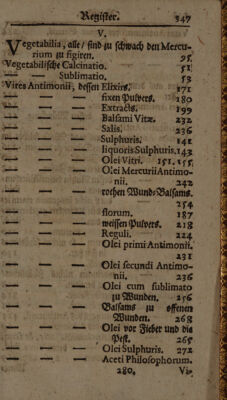 Register. 347
V.
Vegetabilia, alle / sind zu schwach den Mercu-
rium zu figiren. 95.
Vegetabilische Calcinatio. 51
— — Sublimatio. 53
Vires Antimonii, dessen Elixirs. 171
— — — fixen Pulvers. 180
— — — Extracts. 199
— — — Balsami Vitæ. 232
— — — Salis. 236
— — — Sulphuris. 141
— — — liquoris Sulphuris. 143
— — — Olei Vitri. 151. 155.
— — — Olei Mercurii Antimo-
nii. 242
— — — rothen Wund-Balsams.
254
— — — florum. 187
— — — weissen Pulvers. 218
— — — Reguli. 224
— — — Olei primi Antimonii.
231
— — — Olei secundi Antimo-
nii. 236
— — — Olei cum sublimato
zu Wunden. 256
— — — Balsams zu offenen
Wunden. 268
— — — Olei vor Fieber und die
Pest. 265
— — — Olei Sulphuris. 272
— — — Aceti Philosophorum.
280. Vi-